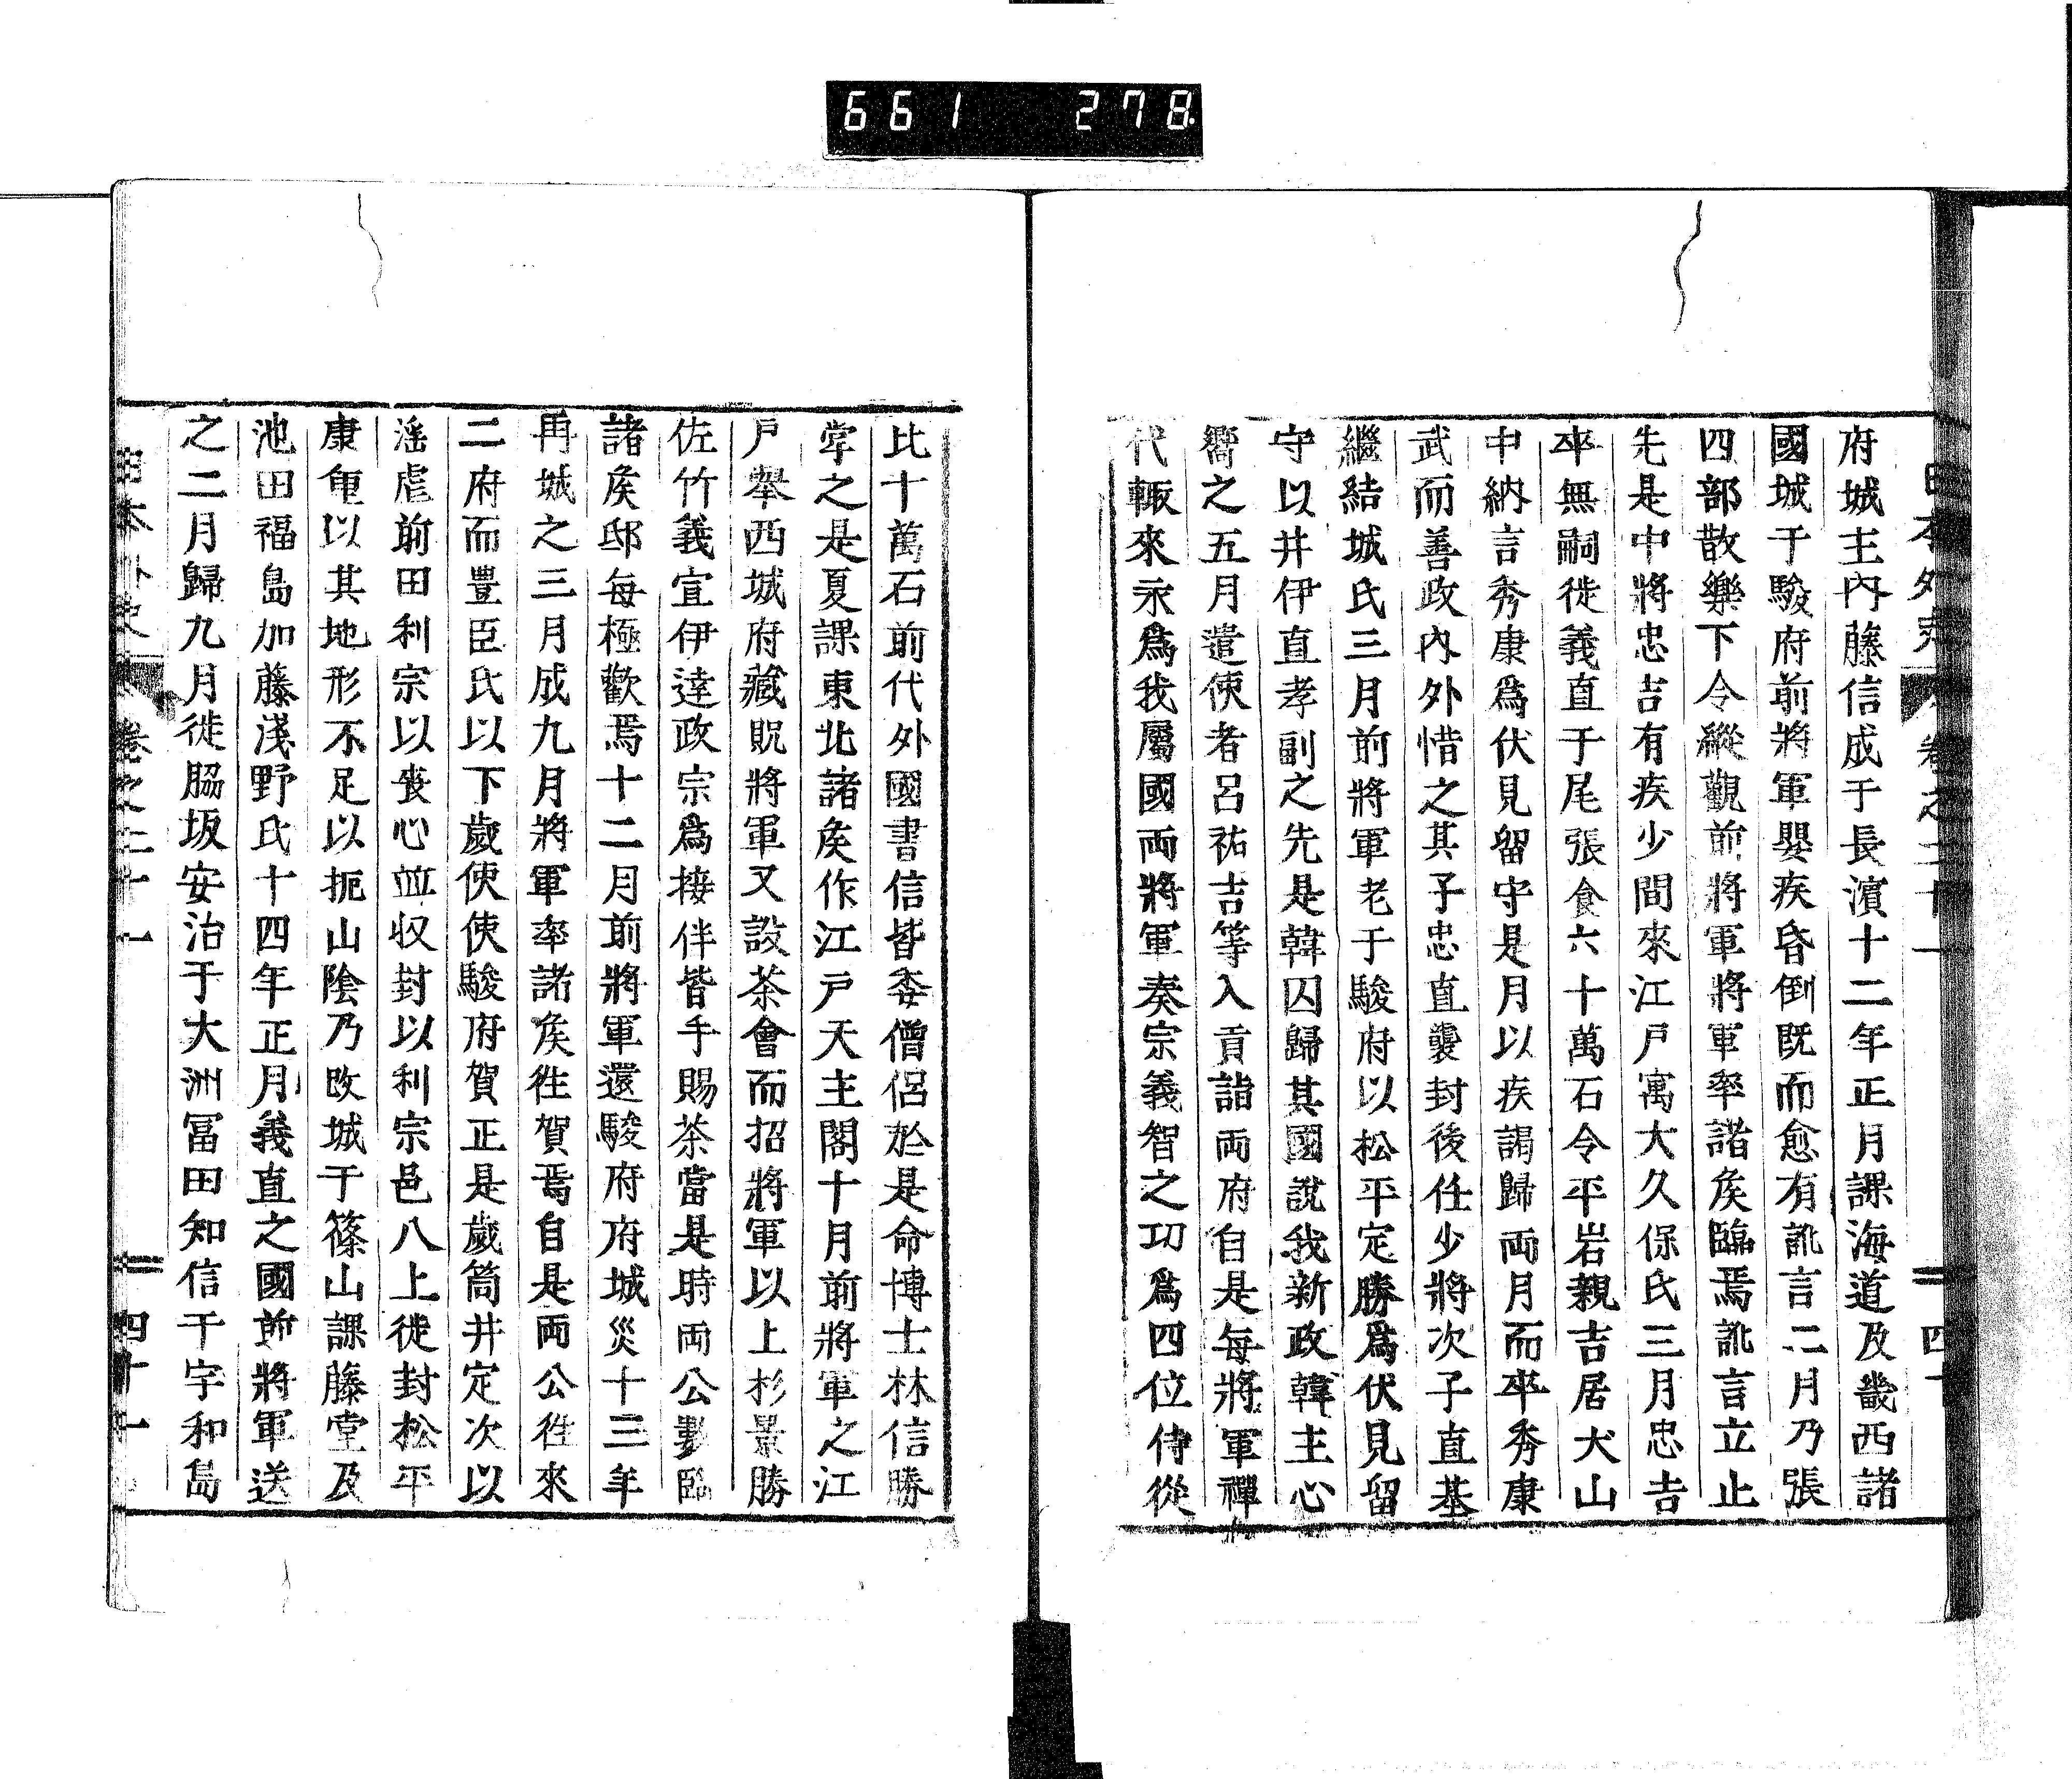 661 278
府城主內藤信成于長濵十二年正月課海道及畿西諸
國城于駿府前將軍嬰疾昏倒既而愈有訛言二月乃張
四部散樂下令縱觀前將軍將軍率諸矦臨焉訛言立止
先是中將忠吉有疾少間來江戶寓大久保氏三月忠吉
卒無嗣徙義直于尾張食六十萬石令平岩親吉居犬山
中納言秀康爲伏見留守是月以疾謁歸両月而卒秀康
武而善政內外惜之其子忠直襲封後任少將次子直基
繼結城氏三月前將軍老于駿府以松平定勝爲伏見留
守以井伊直孝副之先是韓囚歸其國說我新政韓主心
嚮之五月遣使者呂祐吉等入貢詣両府自是每將軍禪
代輙來永爲我屬國両將軍奏宗義智之功爲四位侍從
比十萬石前代外國書信皆委僧侶於是命博士林信勝
掌之是夏課東北諸矦作江戶天主閣十月前將軍之江
戶舉西城府藏貺將軍又設茶會而招將軍以上杉景勝
佐竹義宣伊達政宗爲接伴皆手賜茶當是時両公數臨
諸矦邸每極歡焉十二月前將軍還駿府府城災十三年
再城之三月成九月將軍率諸矦徃賀焉自是両公徃來
二府而豊臣氏以下歲使使駿府賀正是歲筒井定次以
滛虐前田利宗以喪心並収封以利宗邑八上徙封松平
康重以其地形不足以扼山陰乃改城于篠山課藤堂及
池田福島加藤淺野氏十四年正月義直之國前將軍送
之二月歸九月徙脇坂安治于大洲冨田知信于宇和島
日本外史 卷之二十一 四十一